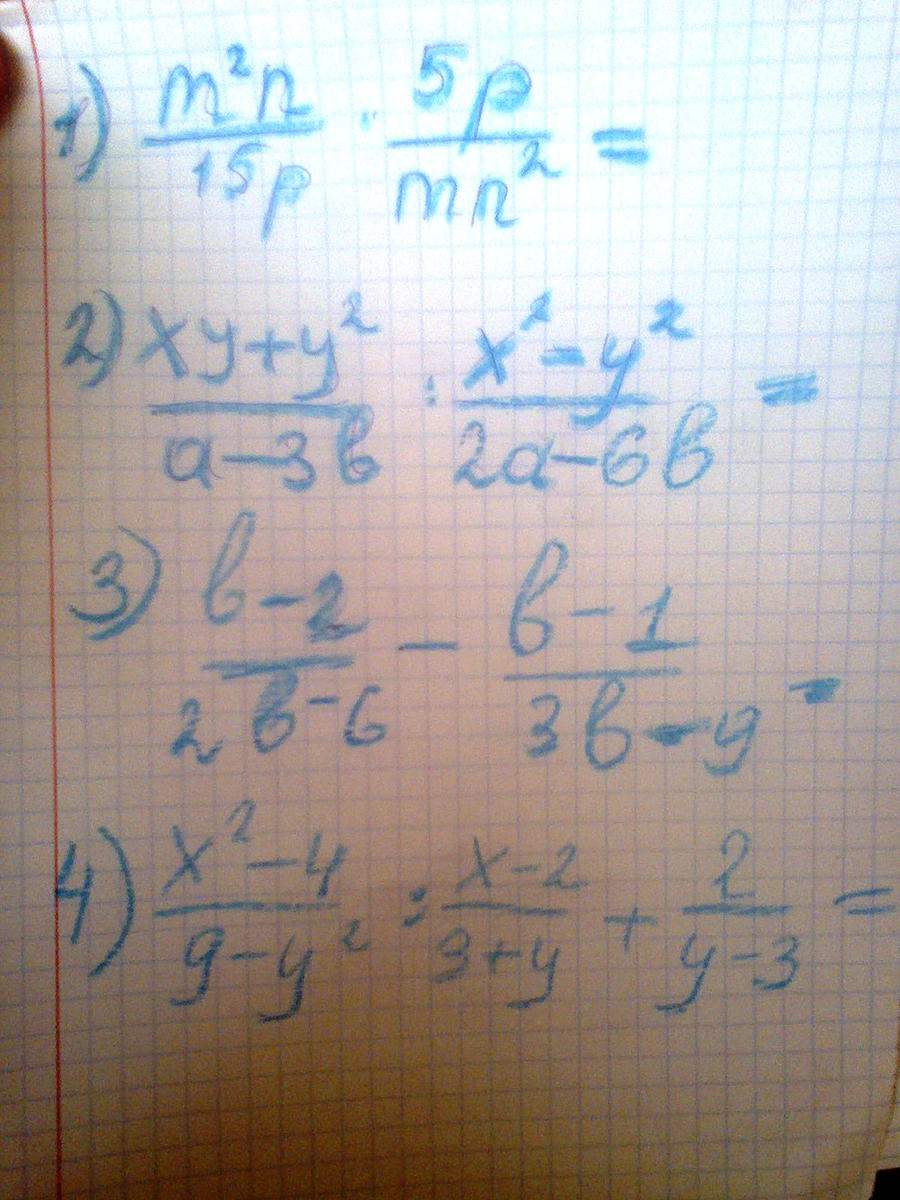 1) m²n/15p · 5p/mn² =
2) xy+y²/a-3b : x²-y²/2a-6b =
3) b-2/2b-6 - b-1/3b-9 =
4) x²-4/9-y² : x-2/3+y + 2/y-3 =